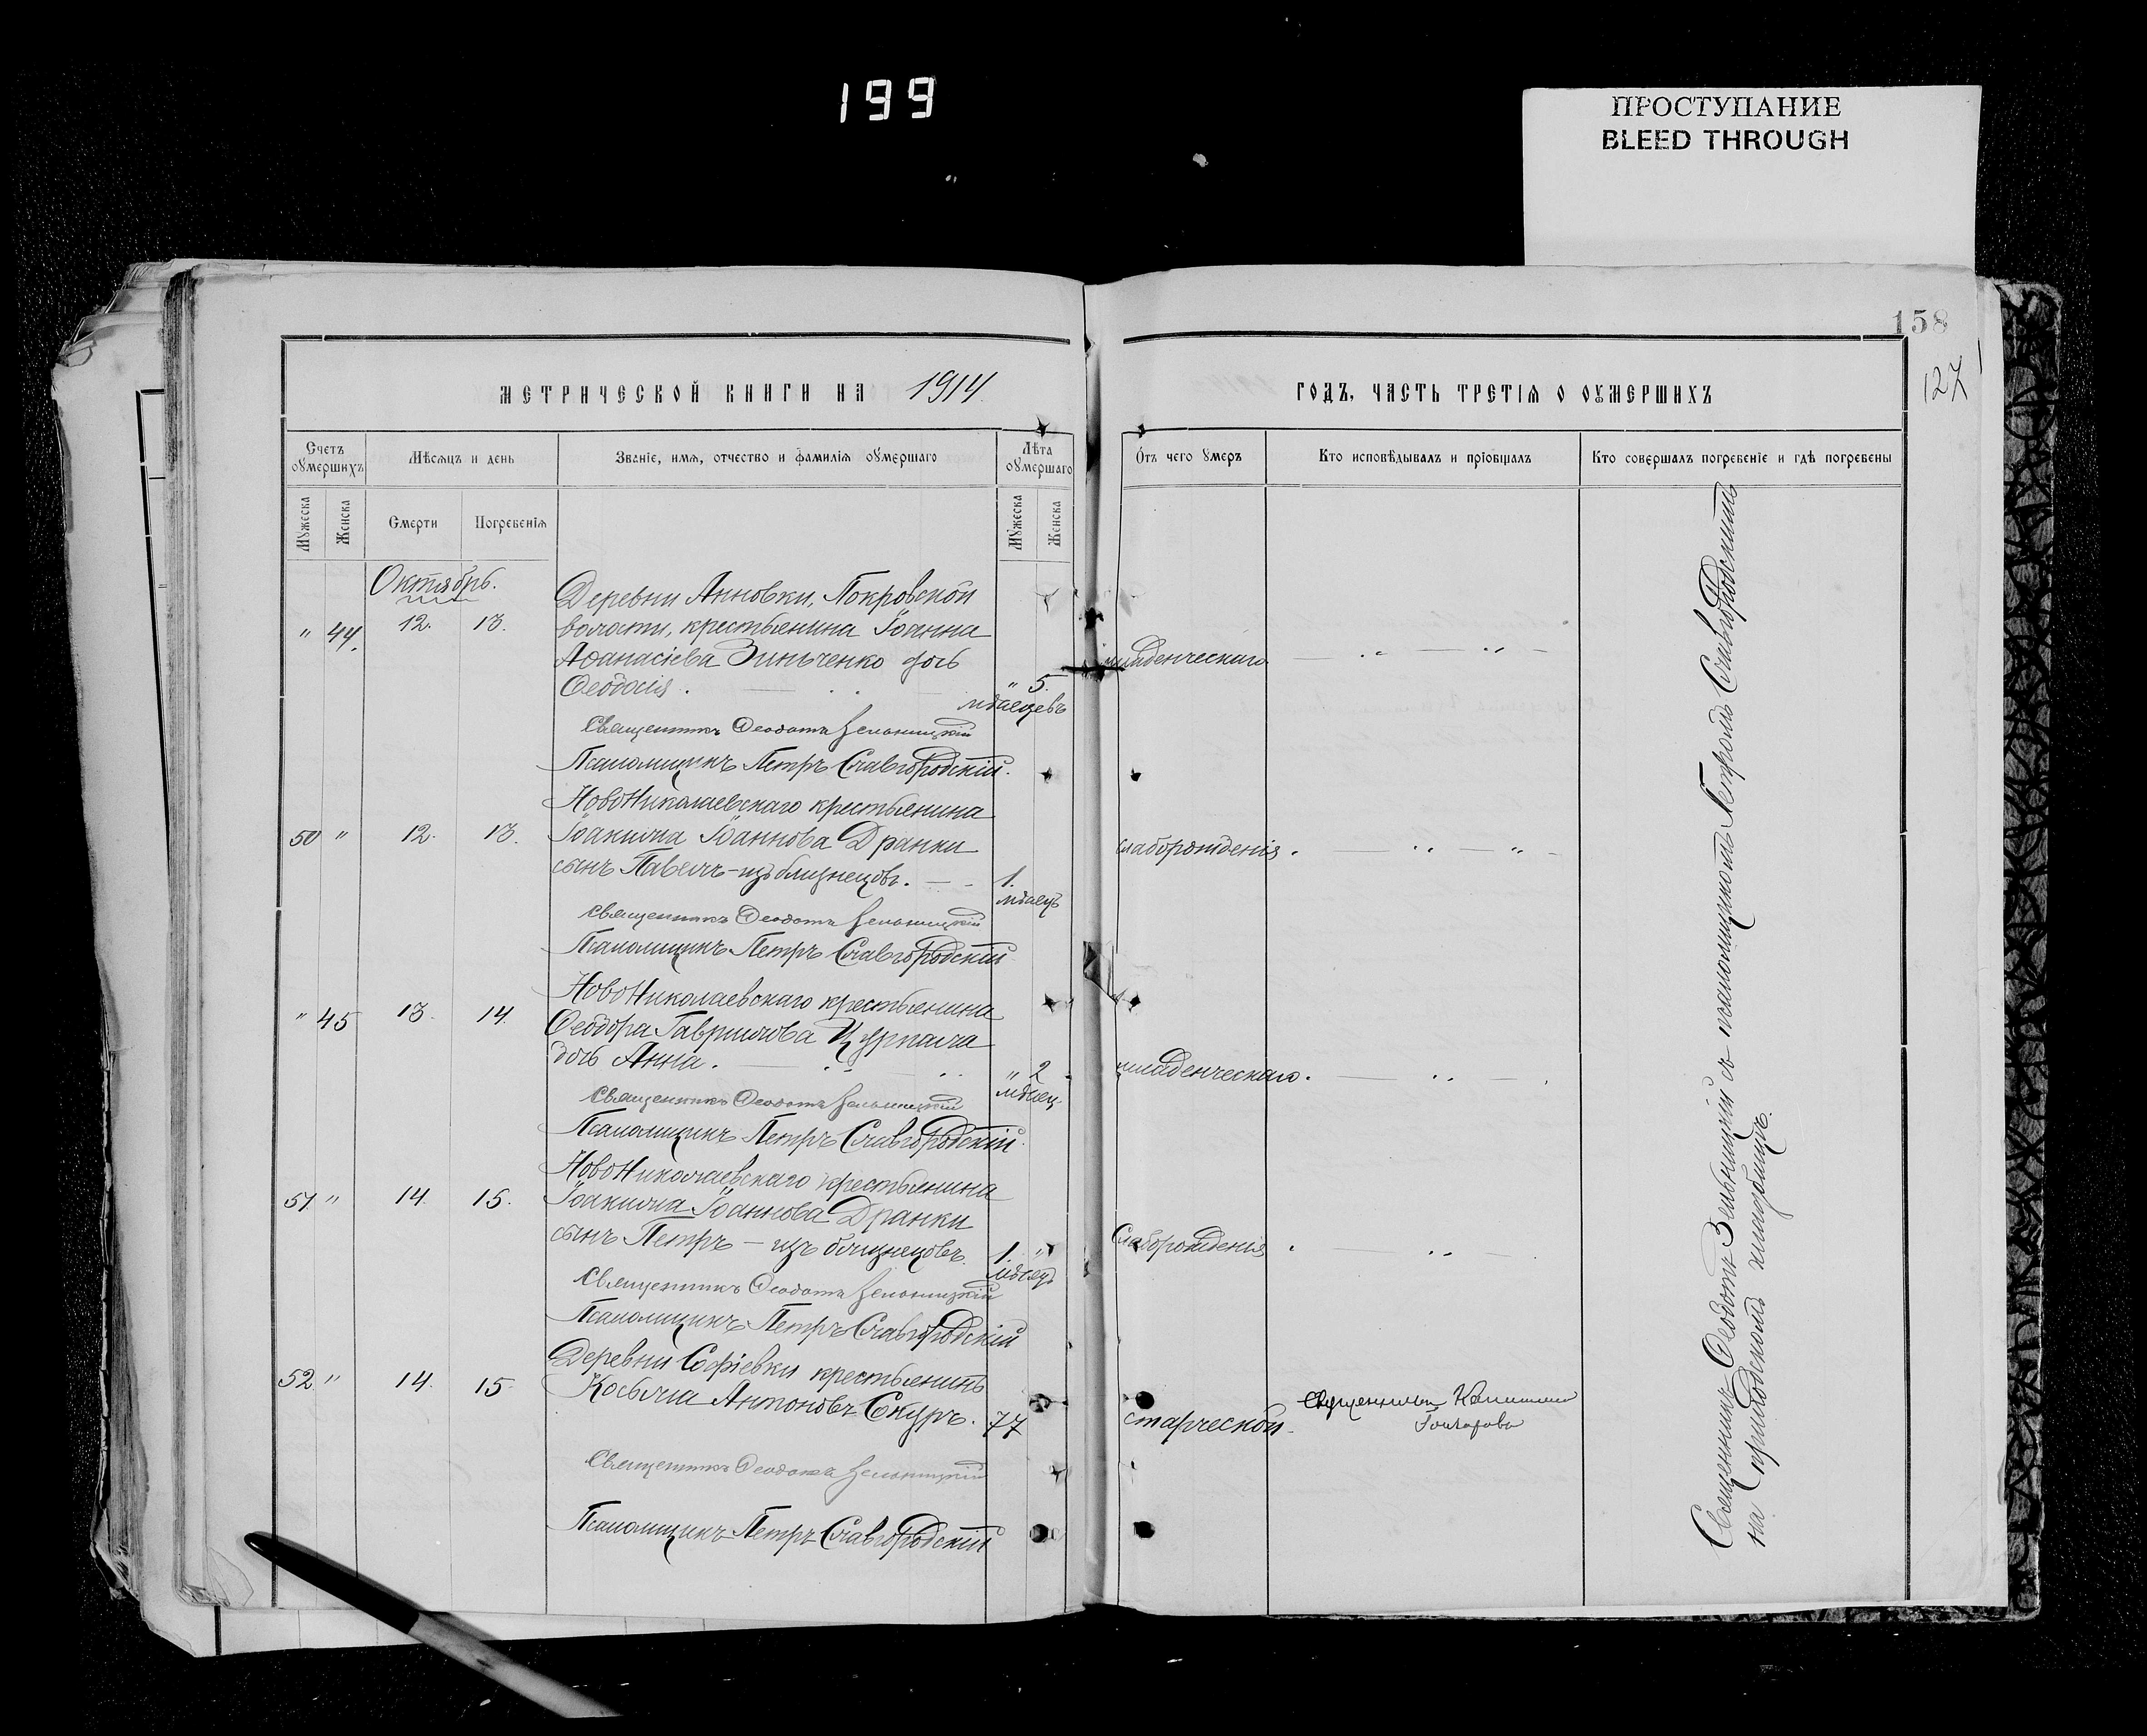 199
ПРОСТУПАНИЕ
BLEED THROUGH
158
127
МЕТРИЧЕСКОЙ КНИГИ НА 1914.
ГОДЪ, ЧАСТЬ ТРЕТІЯ О ОУМЕРШИХЪ
Счетъ оумершихъ
Мѣсяцъ и день
Званіе, имя, отчество и фамилія оумершаго
Лѣта оумершаго
Отъ чего умеръ
Кто исповѣдывалъ и пріобщалъ
Кто совершалъ погребеніе и гдѣ погребены
Мужеска
Женска
Смерти
Погребенія
Мужеска
Женска
Октябрь.
Деревни Анновки, Покровской
" 44. 12. 13. волости, крестьянина Іоанна
Аѳанасіева Зинченко дочь
Ѳеодосія. " 5. мѣсяцевъ
младенческаго
Священникъ Ѳеодотъ Зельницкій
Псаломщикъ Петръ Славгородскій.
НовоНиколаевскаго крестьянина
50 " 12. 13. Іоакима Іоаннова Дранки
сынъ Павелъ - изъ близнецовъ. 1. мѣсяцъ
слаборожденія.
Священникъ Ѳеодотъ Зельницкій
Псаломщикъ Петръ Славгородскій
НовоНиколаевскаго крестьянина
" 45 13. 14. Ѳеодора Гавриилова Цурпала
дочь Анна. " 2 мѣсяц.
младенческаго.
Священникъ Ѳеодотъ Зельницкій
Псаломщикъ Петръ Славгородскій.
НовоНиколаевскаго крестьянина
51 " 14. 15. Іоакима Іоаннова Дранки
сынъ Петръ - изъ близнецовъ. 1. " мѣсяцъ
Слаборожденія
Священникъ Ѳеодотъ Зельницкій
Псаломщикъ Петръ Славгородскій
Деревни Софіевки крестьянинъ
52 " 14. 15. Косьма Антоновъ Скуръ. 77
старческой.
Гончарова
Священникъ Ѳеодотъ Зельницкій
Псаломщикъ Петръ Славгородскій
Священникъ Ѳеодотъ Зельницкій съ псаломщикомъ Петромъ Славгородскимъ
на приходскомъ кладбищѣ.